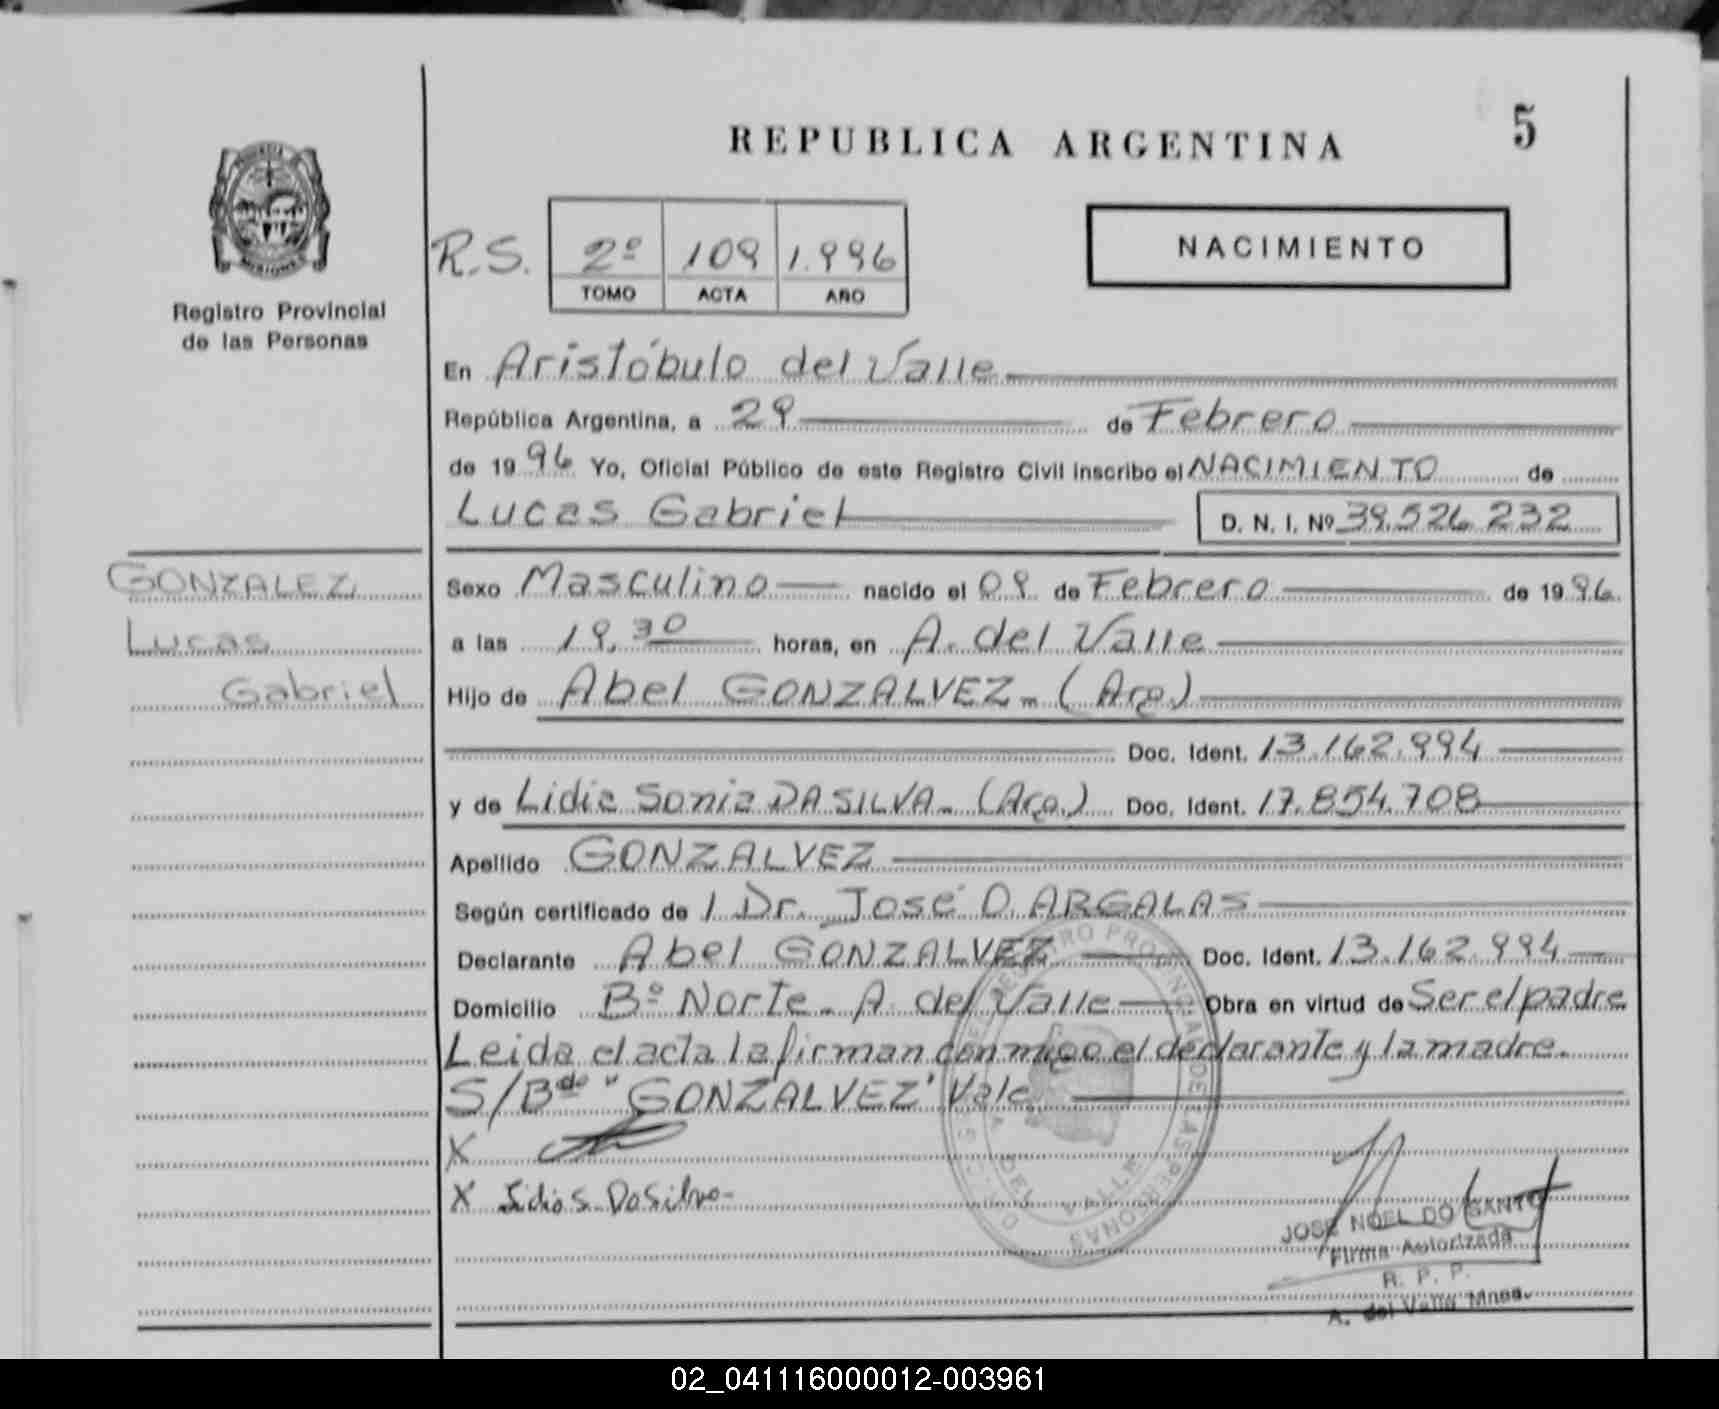 REPUBLICA ARGENTINA
5
PROVINCIA DE MISIONES
Registro Provincial
de las Personas
R.S.
2º 109 1.996
TOMO ACTA AÑO
NACIMIENTO
En Aristóbulo del Valle
República Argentina, a 29 de Febrero
de 1996 Yo, Oficial Público de este Registro Civil inscribo el NACIMIENTO de
Lucas Gabriel D. N. I. Nº 39.526.232
GONZALEZ,
Lucas
Gabriel
Sexo Masculino nacido el 09 de Febrero de 1996
a las 19,30 horas, en A. del Valle
Hijo de Abel GONZALVEZ - (Arg.)
Doc. Ident. 13.162.994
y de Lidia Sonia DA SILVA - (Arg.) Doc. Ident. 17.854.708
Apellido GONZALVEZ
Según certificado de / Dr. José O. ARGALAS
Declarante Abel GONZALVEZ Doc. Ident. 13.162.994
Domicilio Bº Norte - A. del Valle Obra en virtud de Ser el padre
Leida el acta la firman conmigo el declarante y la madre.
S/Bdo "GONZALVEZ" Vale
X
X Lidia S. Da Silva-
JOSE NOEL DO SANTO
Firma Autorizada
R. P. P.
A. del Valle Mnes.
02_041116000012-003961